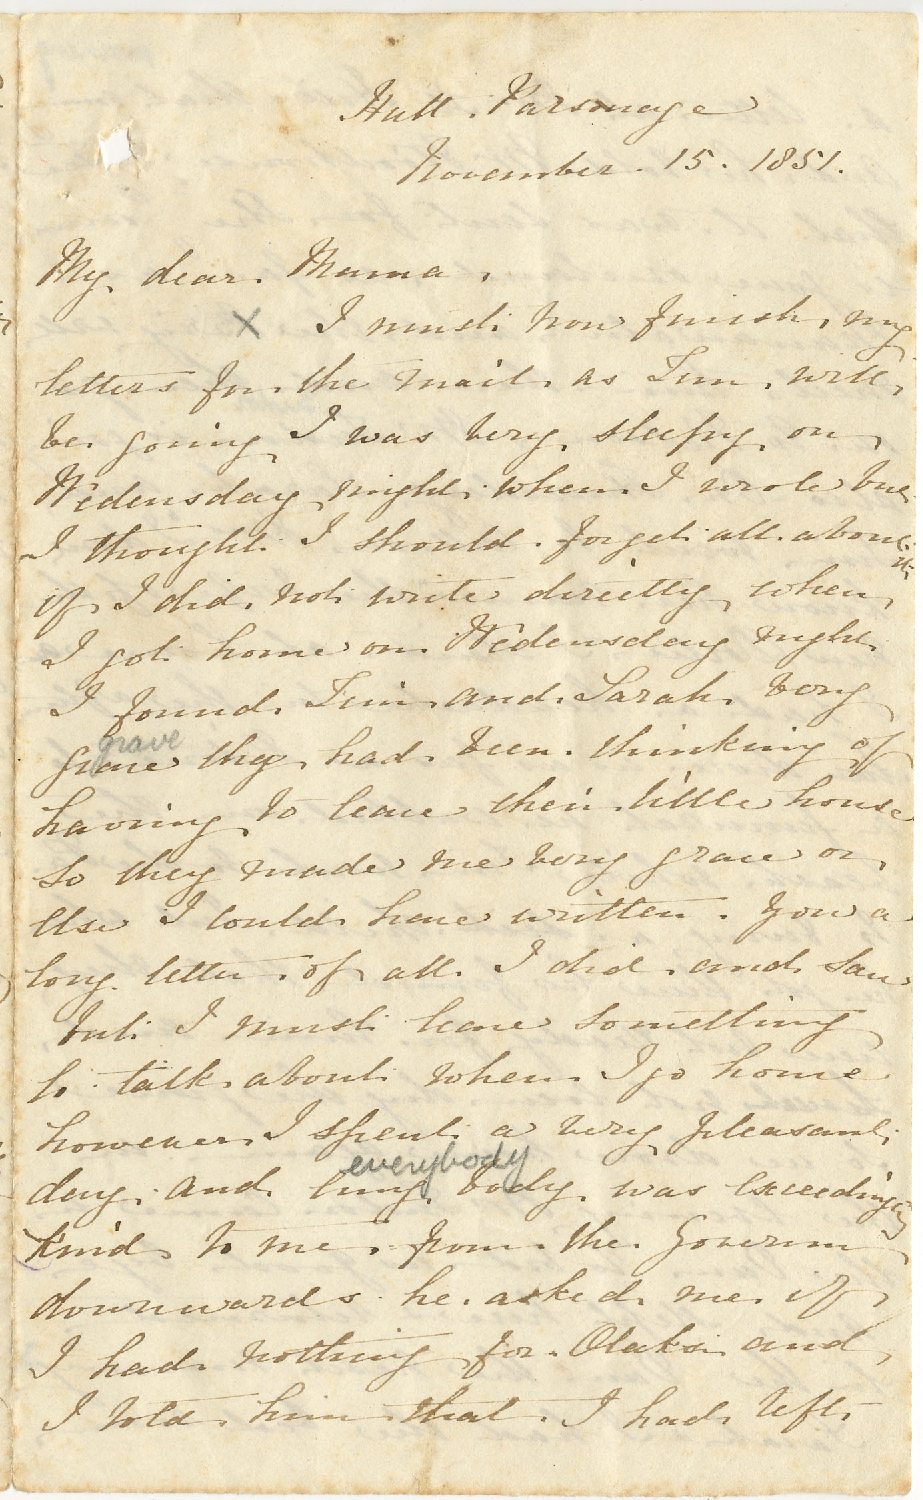 Hutt. Parsonage
November. 15. 1851.
My dear. Mama.
X I must now finish, my
letters for the mail. as Tim. will,
be going I was very sleepy on
Wedensday night when I wrote but
I thought I should. forget all about
it
if I did. not write directly when
I got home on. Wedensday night
I found. Tim. and. Sarah. very
grave
grave they had. been. thinking of
having to leave their little house
so they made me very grave or
else I could have written. you a
long letter. of all. I did. and. saw
but I must leave something
to talk. about when. I go home
however. I spent a very pleasant
day. and every body. was exceedingly
everybody
kind to me. from. the. Governor
downwards he. asked. me. if
I had. nothing for. Otaki and
I told. him that. I had. left